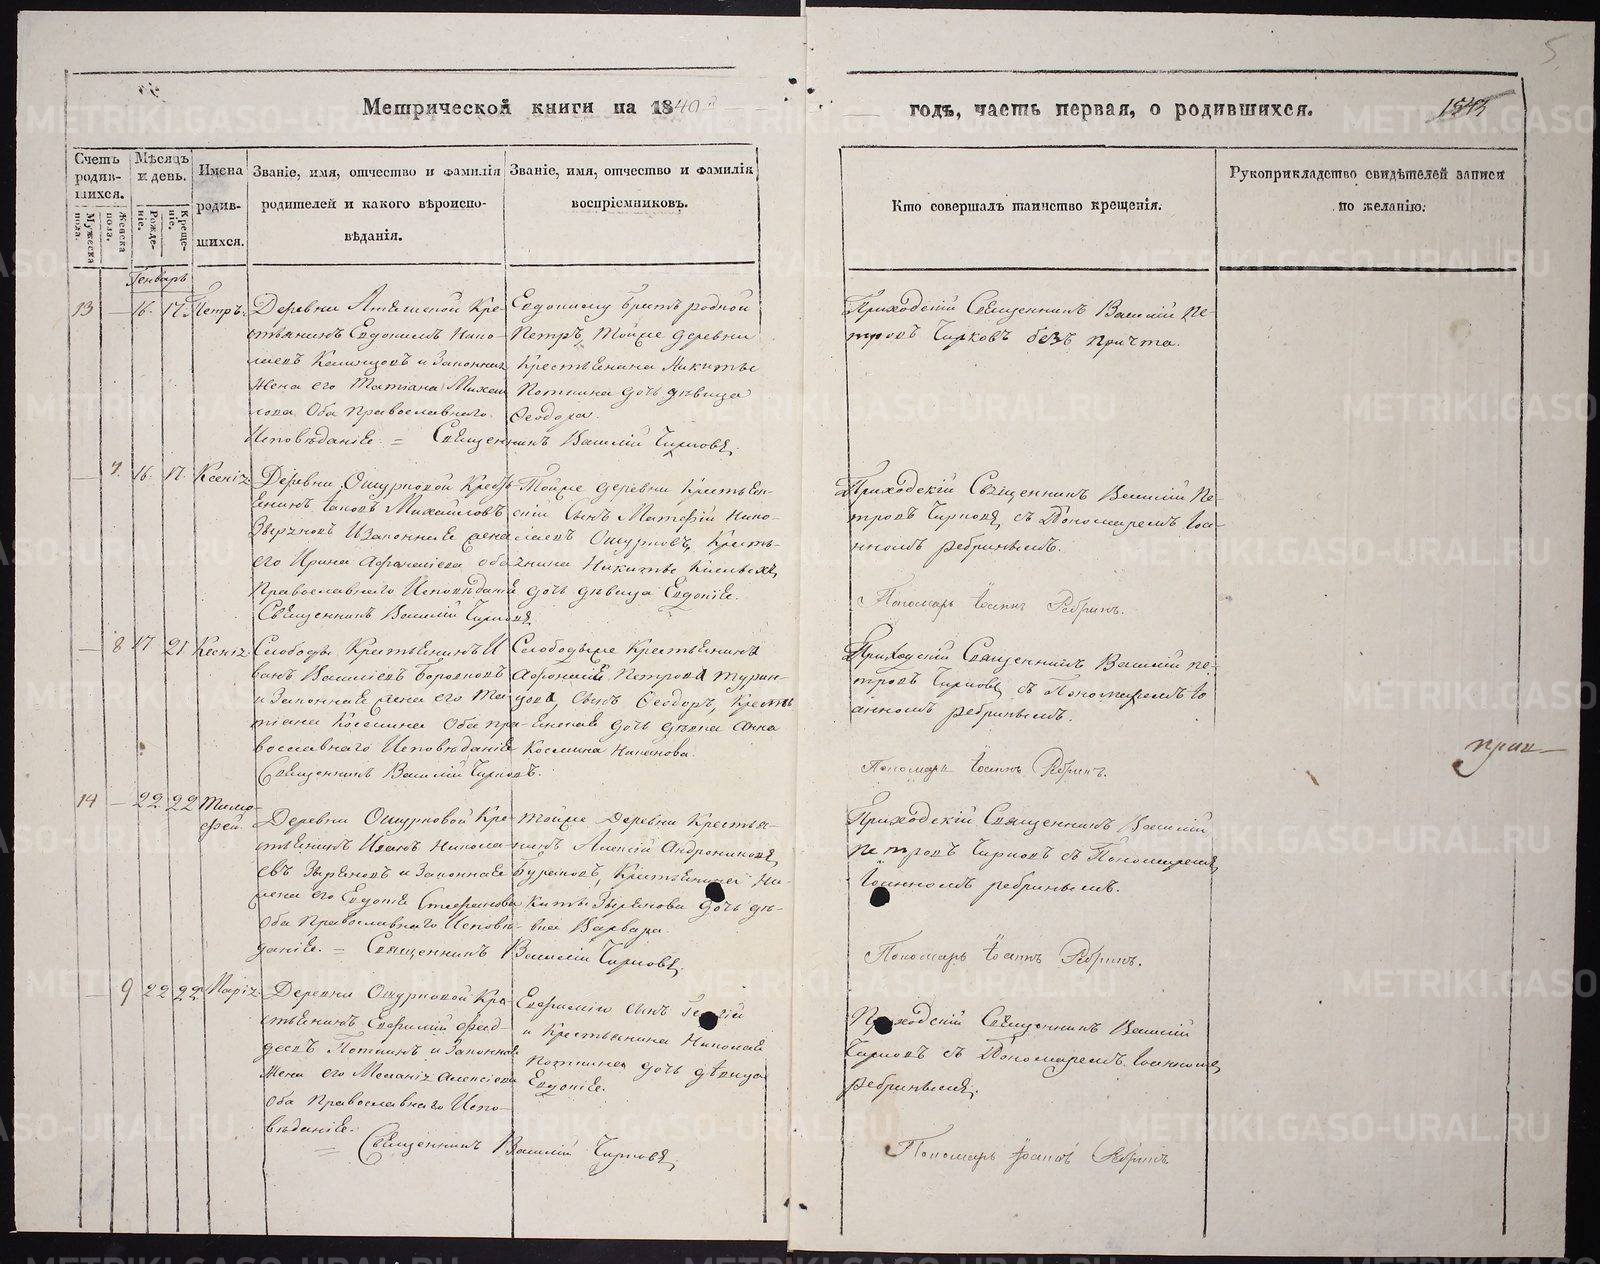 5.
Метрической книги на 1840
годъ, часть первая, о родившихся.
1843
Счетъ родив-шихся.
Мужеска пола.
Женска пола.
Мѣсяцъ и день.
Рожде-ніе.
Креще-ніе.
Имена родив-шихся.
Званіе, имя, отчество и фамилія
родителей и какого вѣроиспо-
вѣданія.
Званіе, имя, отчество и фамилія
воспріемниковъ.
Кто совершалъ таинство крещенія.
Рукоприкладство свидѣтелей записи
по желанію.
Генварь
13 — 16. 17. Петръ.
Деревни Кре-
стьянинъ Евдокимъ Нико-
лаевъ и Законная
жена его Татіана Михаи
лова Оба Православнаго
Исповѣданіе. = Священникъ Василій Чирковъ.
Евдокиму братъ родной
Петръ, тойже деревни
Крестьянина Никиты
Поткина дочь дѣвица
Феодора.
Приходскій Священникъ Василій Пе-
тровъ Чирковъ безъ причта.
— 7. 16. 17. Ксенія
Деревни Ошурковой Кресть
янинъ Іаковъ Михаиловъ
Зырянов Изаконная жена
его Ирина Афонасіева оба
Православнаго Исповѣданія
Священникъ Василій Чирковъ
Тойже деревни Крестьян-
скій сынъ Матфій Нико-
лаевъ Ошурковъ, Кресть-
янина Никиты
дочь дѣвица Евдокія.
Приходскій Священникъ Василій Пе-
тровъ Чирковъ съ Пономаремъ Іоа-
нномъ ребринымъ.
Пономарь Іоаннъ Ребринъ.
— 8 17 21 Ксенія
Слободы Крестьянинъ И
ванъ Василіевъ
и Законная жена его Та-
тіана Косьмина Оба пра-
вославнаго Исповѣданіе
Священникъ Василій Чирковъ.
Слободыже Крестьянина
Афонасія Петрова
сынъ Феодоръ, Кресть
янская дочь дѣвка Анна
Космина
Приходскій Священникъ Василій пе-
тровъ Чирковъ съ Пономаремъ Іо
анномъ ребринымъ.
Пономарь Іоаннъ Ребринъ.
14 — 22 22 Тимо-
фей.
Деревни Ошурковой Кре-
стьянинъ Иванъ Никола-
евъ Зыряновъ и Законная
жена его Евдокія Стефанова
Оба Православнаго Исповѣ-
даніе. = Священникъ Василій Чирковъ.
тойже деревни Крестья-
нинъ Алексій Андрониковъ
Крестьянина Ни-
киты Зырянова дочь дѣ-
вка Варвара.
Приходскій Священникъ Василій
петровъ Чирковъ съ Пономаремъ
Іоанномъ ребринымъ.
Пономарь Іоаннъ Ребринъ.
— 9 22 22 Марія
Деревни Ошурковой Кре-
стьянинъ Евфимій
Поткинъ и Законная
Жена его Меланія Алексіева
Оба Православнаго Испо-
вѣданіе.
= Священникъ Василій Чирковъ.
Евфимію сынъ
и Крестьянина Николая
Поткина дочь дѣвица
Евдокія.
Приходскій Священникъ Василій
Чирковъ съ Пономаремъ Іоанномъ
ребринымъ.
Пономарь Іоаннъ Ребринъ
METRIKI.GASO-URAL.RU